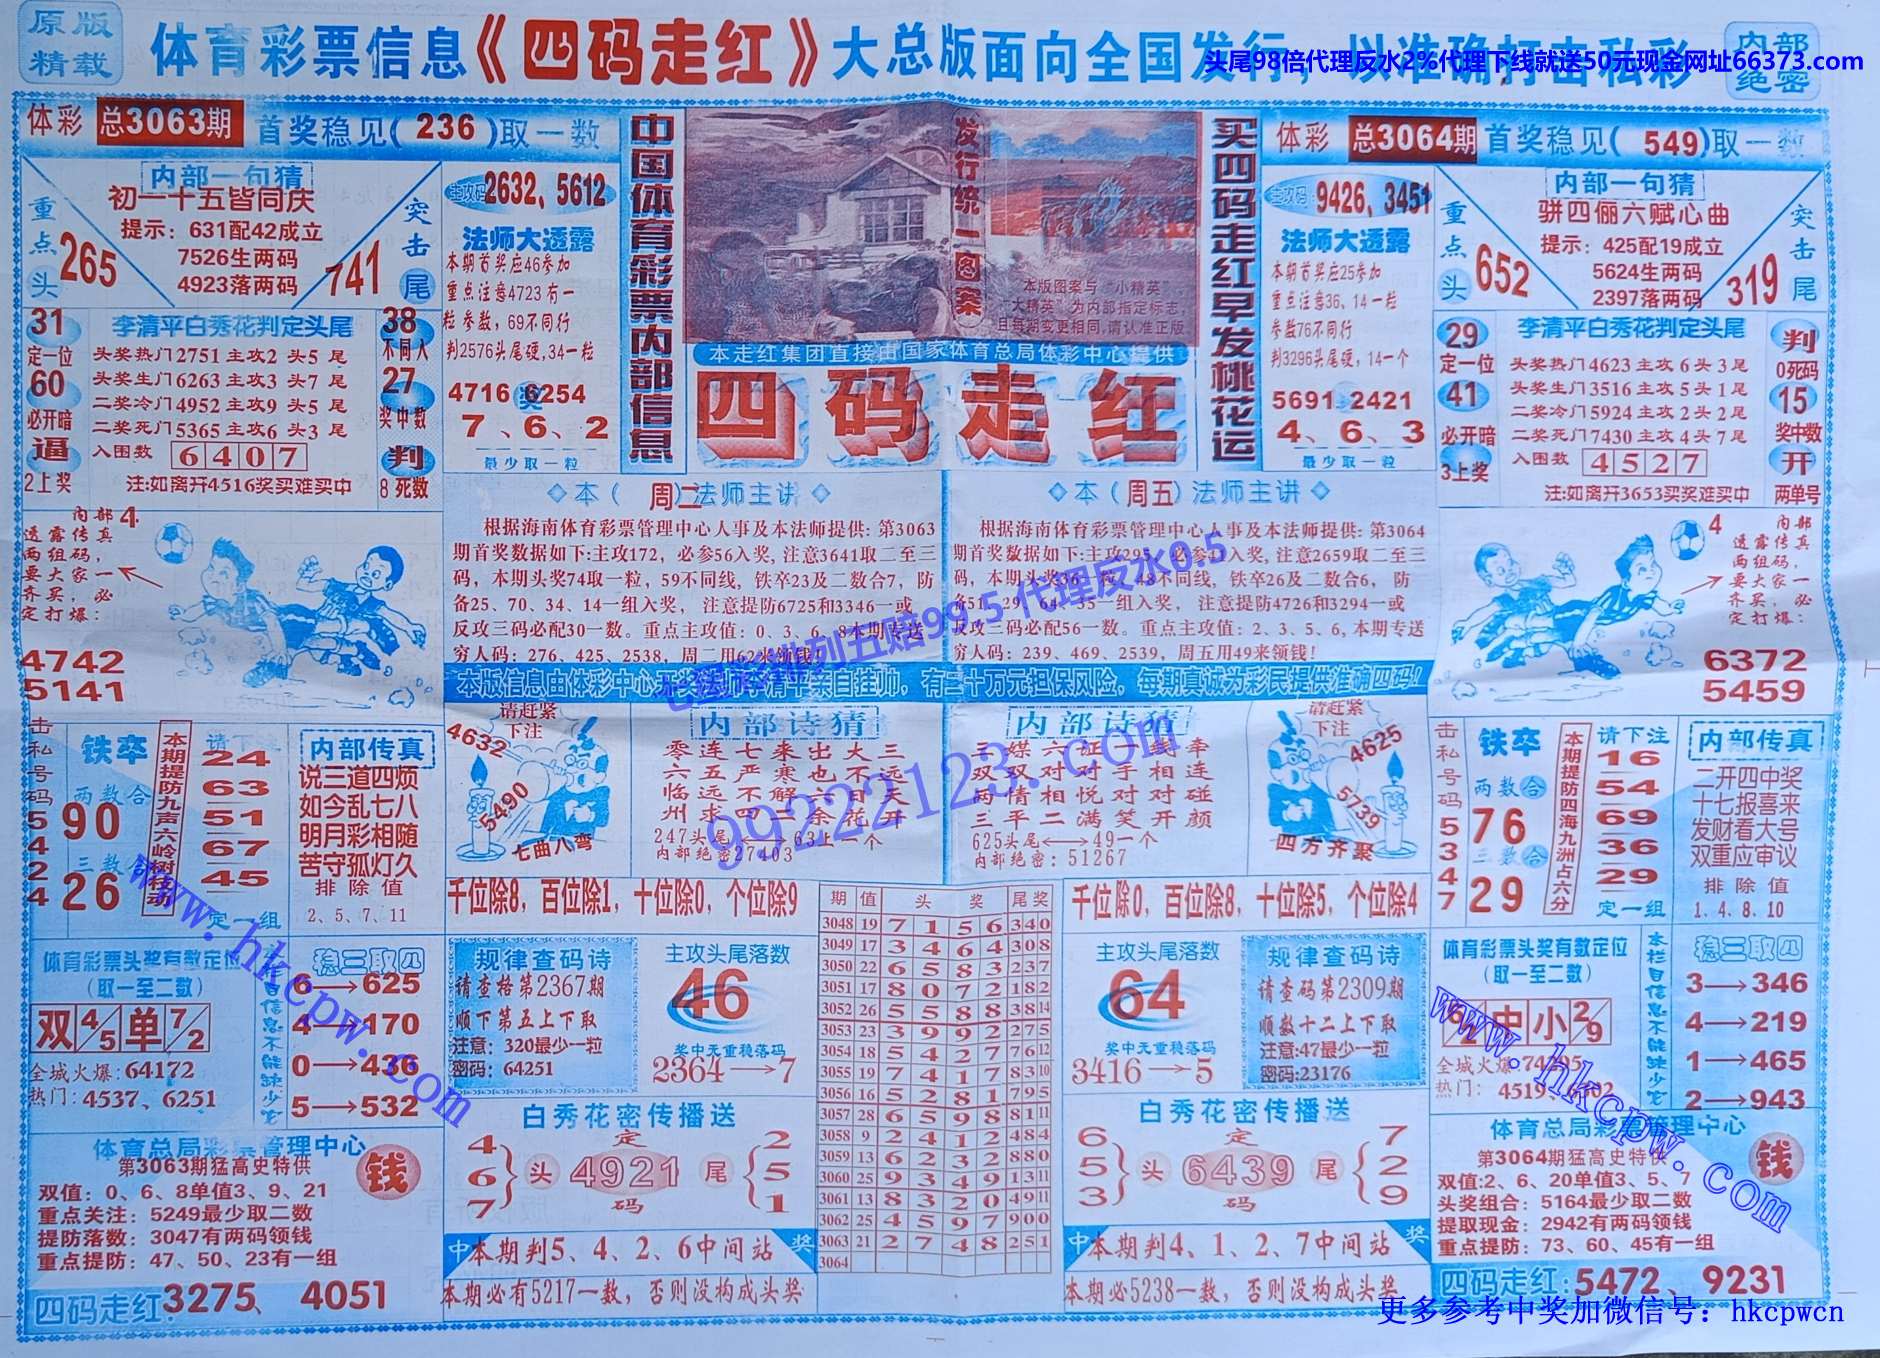 原版
精载
体育彩票信息《四码走红》大总版面向全国发行，以准确打击私彩
内部
绝密
头尾98倍代理反水2%代理下线就送50元现金网址66373.com
体彩 总3063期 首奖稳见(236)取一数
内部一句猜
初一十五皆同庆
提示：631配42成立
7526生两码
4923落两码
重点头
265
突击尾
741
主攻码 2632、5612
法师大透露
本期首奖应46参加
重点注意4723有一
粒参数，69不同行
判2576头尾硬,34一粒
4716奖6254
7、6、2
最少取一粒
31
定一位
60
必开暗
逼
2上奖
李清平白秀花判定头尾
头奖热门2751主攻2头5尾
头奖生门6263主攻3头7尾
二奖冷门4952主攻9头5尾
二奖死门5365主攻6头3尾
入围数 6407
注:如离开4516奖买难买中
38
不同入
27
奖中数
判
8死数
中国体育彩票内部信息
发行统一图案
本版图案与“小精英”
“大精英”为内部指定标志
且每期变更相同,请认准正版
本走红集团直接由国家体育总局体彩中心提供
四码走红
买四码走红早发桃花运
体彩 总3064期 首奖稳见(549)取一数
主攻码 9426、3451
法师大透露
本期首奖应25参加
重点注意36,14一粒
参数76不同行
判3296头尾硬,14一个
5691 2421
4、6、3
最少取一粒
内部一句猜
骈四俪六赋心曲
提示：425配19成立
5624生两码
2397落两码
重点头
652
突击尾
319
29
定一位
41
必开暗
3上奖
李清平白秀花判定头尾
头奖热门4623主攻6头3尾
头奖生门3516主攻5头1尾
二奖冷门5924主攻2头2尾
二奖死门7430主攻4头7尾
入围数 4527
注:如离开3653买奖难买中
判
0死码
15
奖中数
开
两单号
内部4
透露传真
两组码，
要大家一
齐买，必
定打爆：
4742
5141
本（周二）法师主讲
根据海南体育彩票管理中心人事及本法师提供：第3063
期首奖数据如下:主攻172，必参56入奖,注意3641取二至三
码，本期头奖74取一粒，59不同线，铁卒23及二数合7，防
备25、70、34、14一组入奖，注意提防6725和3346一或
反攻三码必配30一数。重点主攻值：0、3、6、8本期专送
穷人码：276、425、2538，周二用62来领钱！
本（周五）法师主讲
根据海南体育彩票管理中心人事及本法师提供：第3064
期首奖数据如下:主攻295，必参 入奖,注意2659取二至三
码，本期头奖36一粒，48不同线，铁卒26及二数合6，防
备51、29、64、35一组入奖，注意提防4726和3294一或
反攻三码必配56一数。重点主攻值：2、3、5、6,本期专送
穷人码：239、469、2539，周五用49来领钱！
七星彩排列五赔99.5 代理反水0.5
99222123.com
本版信息由体彩中心 李清平亲自挂帅，有二十万元担保风险，每期真诚为彩民提供准确四码！
4 内部
透露传真
两组码，
要大家一
齐买，必
定打爆：
6372
5459
击私号码5424
铁卒
两数合
90
三数合
26
本期提防九声六岭树枝动
请下注
24
63
51
67
45
定一组
内部传真
说三道四烦
如今乱七八
明月彩相随
苦守孤灯久
排除值
2、5、7、11
请赶紧
下注
4632
5490
七曲八弯
内部诗猜
零连七来出大三
六五严寒也不远
临远不解六日天
州求四二余花开
247头尾 63上一个
内部绝密27403
内部诗猜
三媒六证一线牵
双双对对手相连
两情相悦对对碰
三平二满笑开颜
625头尾←→49一个
内部绝密：51267
请赶紧
下注
4625
5739
四方齐聚
击私号码5347
铁卒
两数合
76
三数合
29
本期提防四海九洲占六分
请下注
16
54
69
36
29
定一组
内部传真
二开四中奖
十七报喜来
发财看大号
双重应审议
排除值
1、4、8、10
千位除8，百位除1，十位除0，个位除9
期 值 头奖 尾奖
3048 19 7156 340
3049 17 3464 308
3050 22 6583 237
3051 17 8072 182
3052 26 5588 3814
3053 23 3992 275
3054 18 5427 7612
3055 19 7417 8310
3056 16 5281 795
3057 28 6598 8111
3058 9 2412 484
3059 13 6232 880
3060 25 9349 1311
3061 13 8320 4911
3062 25 4597 900
3063 21 2748 251
3064
千位除0，百位除8，十位除5，个位除4
体育彩票头奖有数定位
(取一至二数)
双 4/5 单 7/2
全城火爆:64172
热门：4537、6251
本栏目信息不能缺少它
稳三取四
6→625
4→170
0→436
5→532
规律查码诗
请查格第2367期
顺下第五上下取
注意：320最少一粒
密码：64251
主攻头尾落数
46
奖中无重稳落码
2364→7
主攻头尾落数
64
奖中无重稳落码
3416→5
规律查码诗
请查码第2309期
顺数十二上下取
注意:47最少一粒
密码:23176
体育彩票头奖有数定位
(取一至二数)
中 小 2/9
全城火爆：
热门：
本栏目信息不能缺少它
稳三取四
3→346
4→219
1→465
2→943
体育总局彩票管理中心
第3063期猛高史特供
双值：0、6、8单值3、9、21
重点关注：5249最少取二数
提防落数：3047有两码领钱
重点提防：47、50、23有一组
钱
四码走红:3275、4051
白秀花密传播送
4
6
7
头
定
4921
码
尾
2
5
1
中 本期判5、4、2、6中间站 奖
本期必有5217一数，否则没构成头奖
白秀花密传播送
6
5
3
头
定
6439
码
尾
7
2
9
中 本期判4、1、2、7中间站 奖
本期必5238一数，否则没构成头奖
体育总局彩票管理中心
第3064期猛高史特供
双值:2、6、20单值3、5、7
头奖组合：5164最少取二数
提取现金：2942有两码领钱
重点提防：73、60、45有一组
钱
四码走红:5472、9231
www.hkcpw.com
www.hkcpw.com
更多参考中奖加微信号：hkcpwcn